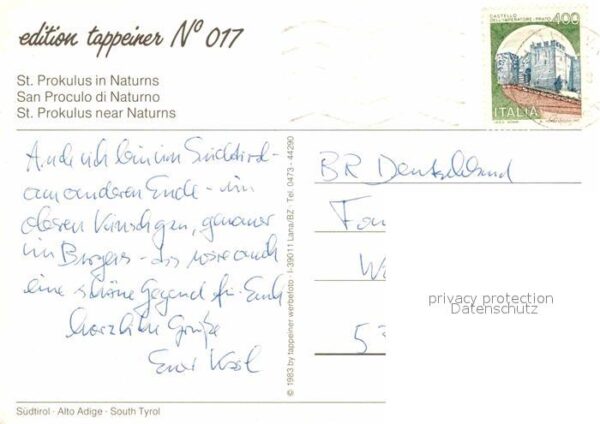 edition tappeiner Nº 017
St. Prokulus in Naturns
San Proculo di Naturno
St. Prokulus near Naturns
CASTELLO
DELL'IMPERATORE - PRATO
400
ITALIA
Auch ich bin im Südtirol -
am anderen Ende - im
oberen Vinschgau, genauer
in Burgeis - das wäre auch
eine schöne Gegend für Euch
herzliche Grüße
Euer
© 1983 by tappeiner werbefoto · I-39011 Lana/BZ · Tel. 0473 - 44290
BR Deutschland
Fa
W
53
privacy protection
Datenschutz
Südtirol · Alto Adige · South Tyrol